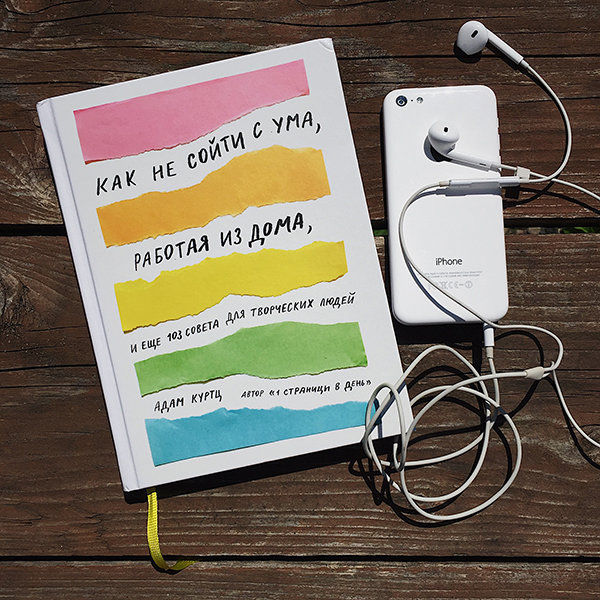 КАК НЕ СОЙТИ С УМА,
РАБОТАЯ ИЗ ДОМА,
И ЕЩЕ 103 СОВЕТА ДЛЯ ТВОРЧЕСКИХ ЛЮДЕЙ
АДАМ КУРТЦ АВТОР «1 СТРАНИЦЫ В ДЕНЬ»
iPhone